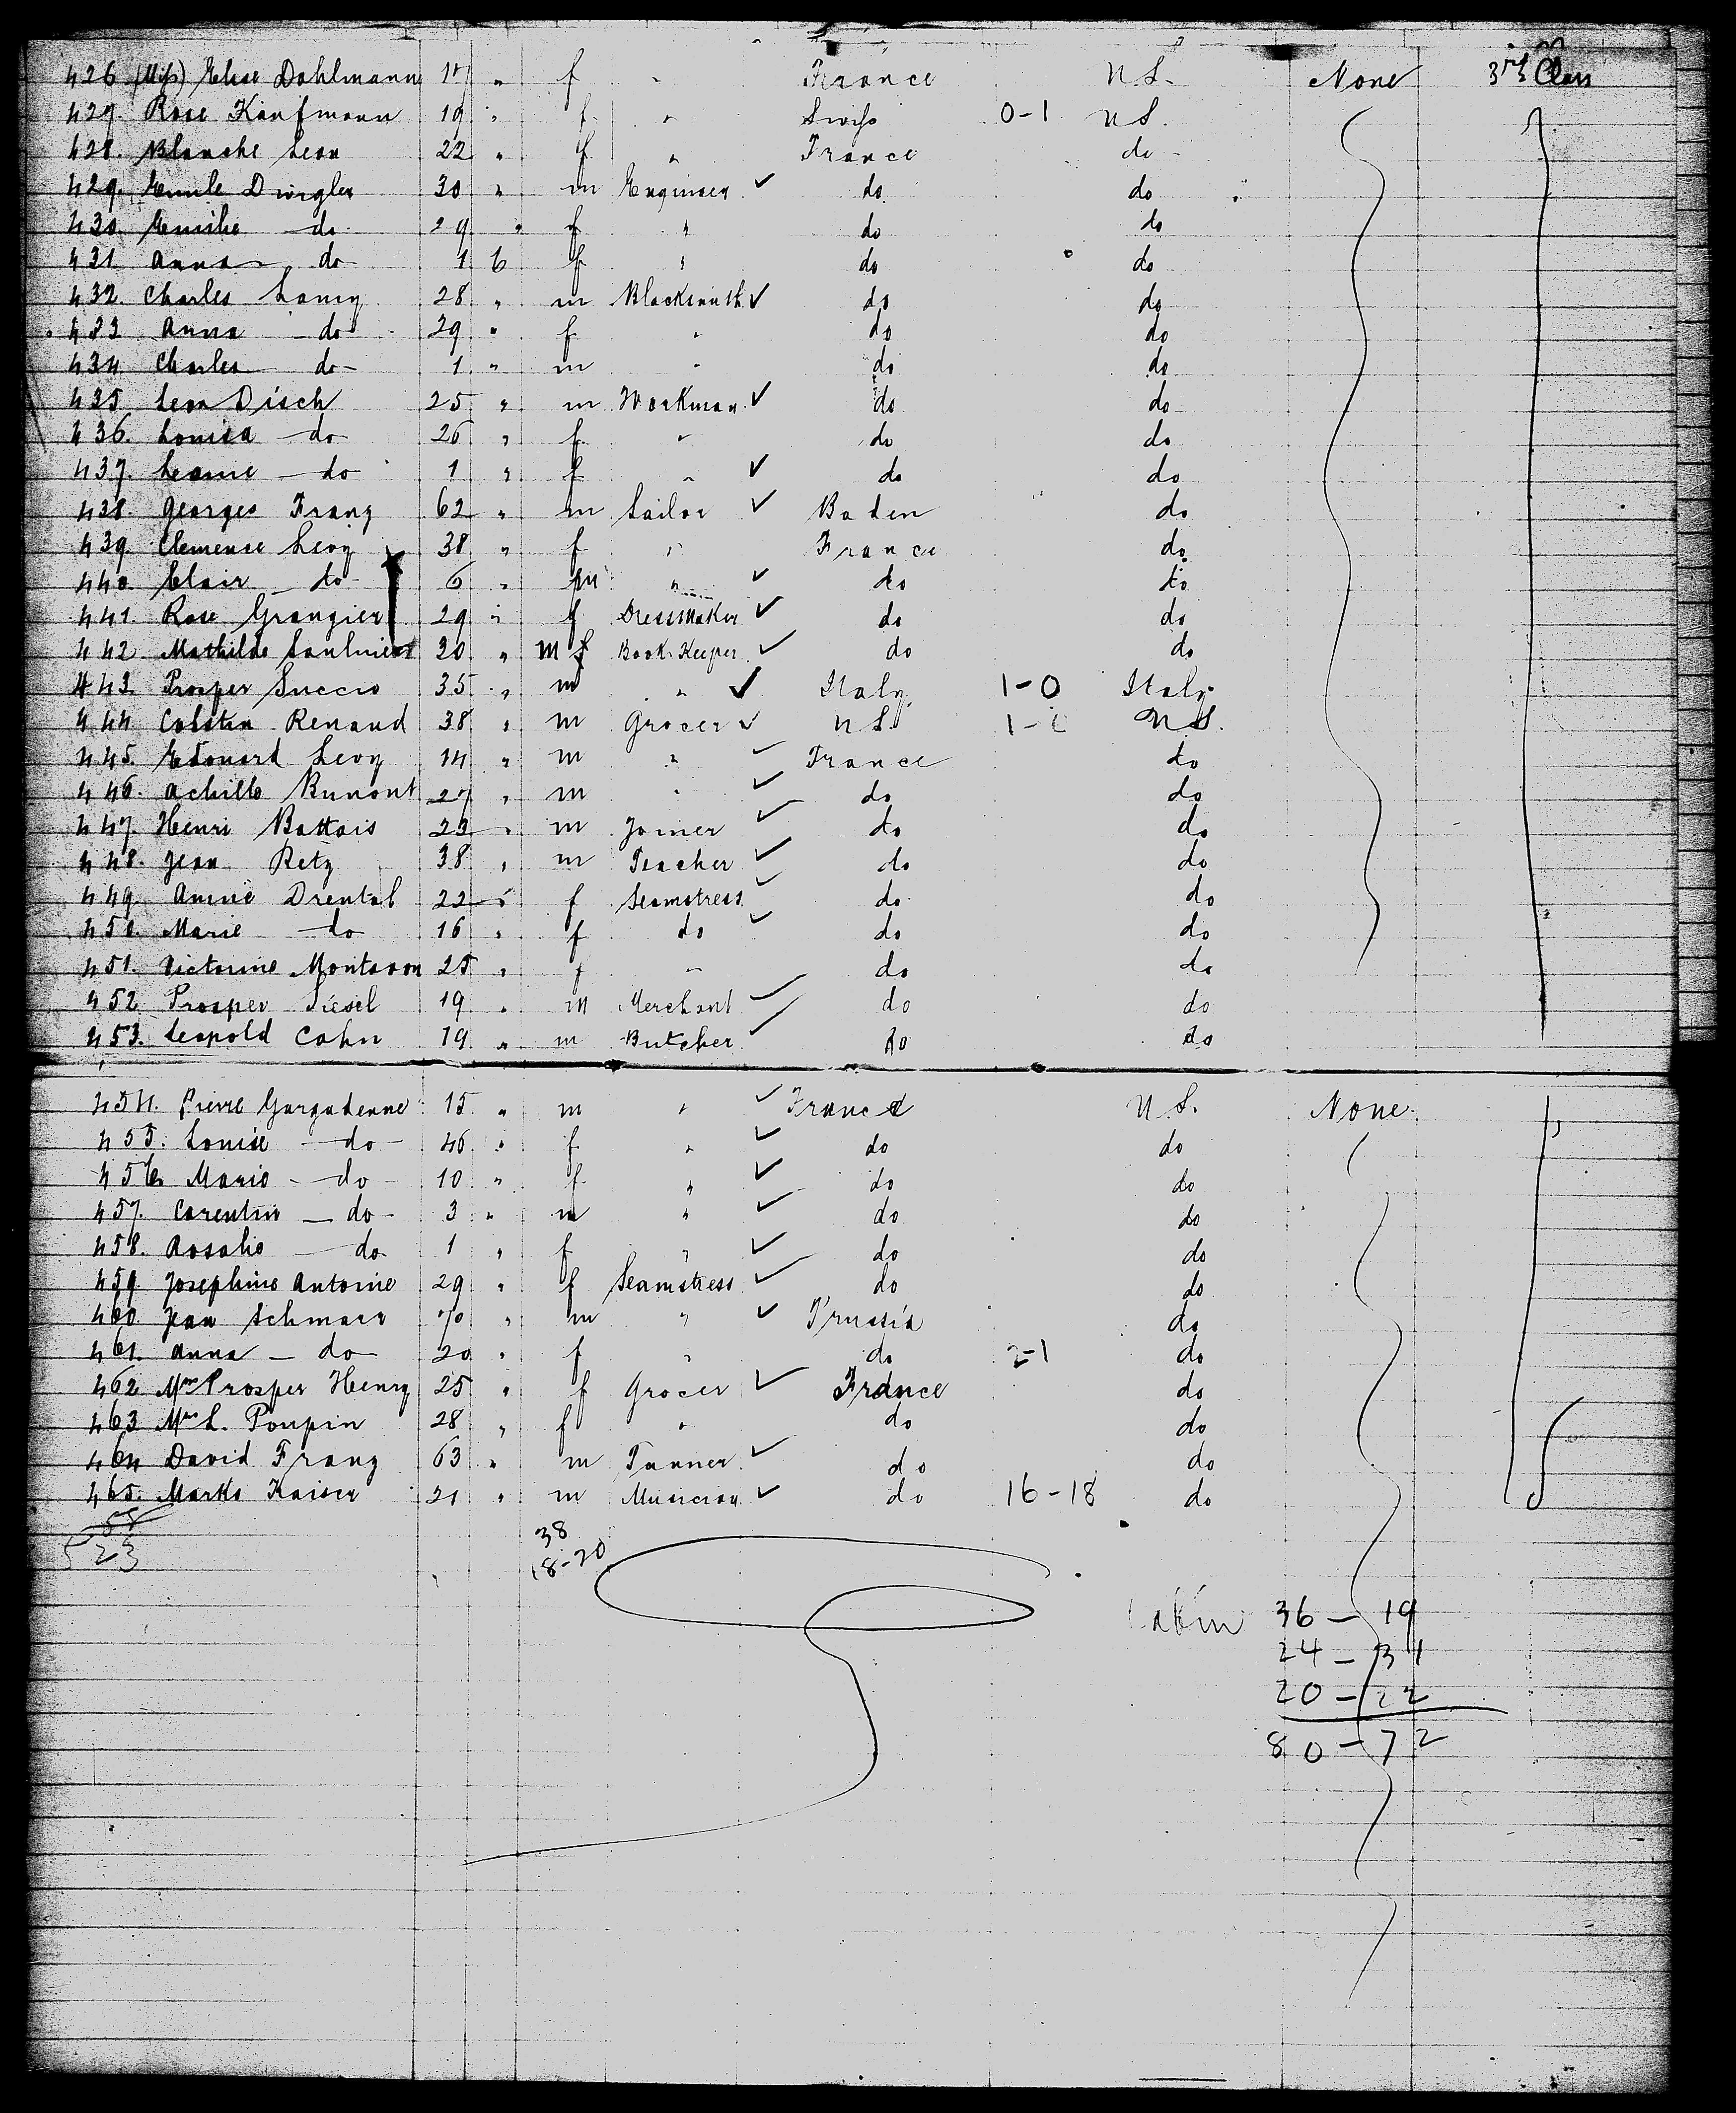 426 (Miss) Elise Dahlmann 17 " f " France U S. None 3rd Class
427. Rose Kaufmann 19 " f " Swiss 0-1 U S.
428. Blanche Leon 22 " f " France do
429. Emile Dingler 30 " m Engineer ✓ do do
430. Emilie do 29 " f " do do
431 Anna do 1 6 f " do do
432. Charles Lamy 28 " m Blacksmith ✓ do do
433 Anna do 29 " f " do do
434 Charles do 1 " m " do do
435 Leon Disch 25 " m Workman ✓ do do
436. Louisa do 26 " f " do do
437. Leonie do 1 " f " ✓ do do
438. Georges Franz 62 " m Sailor ✓ Baden do
439. Clemence Levy 38 " f " France do
440. Clair do 6 " m " ✓ do do
441. Rose Grangier 29 " f DressMaker ✓ do do
442 Mathilde Saulnier 30 " m f Book Keeper ✓ do do
443. Prosper Succio 35 " m " ✓ Italy 1-0 Italy
444 Renaud 38 " m Grocer ✓ U S. U S.
445. Edouard Levy 14 " m " ✓ France do
446. Achille 27 " m " ✓ do do
447. Henri Battais 23 " m Joiner ✓ do do
448. Jean Retz 38 " m Teacher ✓ do do
449. Drental 22 " f Seamstress ✓ do do
450. Marie do 16 " f do ✓ do do
451. Victorine 25 " f " do do
452 Prosper 19 " m Merchant ✓ do do
453. Leopold Cahn 19 " m Butcher ✓ do do
454. Pierre Gargadenne 15 " m " ✓ France U S. None
455. Louise do 46 " f " ✓ do do
456 Marie do 10 " f " ✓ do do
457. Corentin do 3 " m " ✓ do do
458. Rosalie do 1 " f " ✓ do do
459. Josephine Antoine 29 " f Seamstress ✓ do do
460. Jean 70 " m " ✓ Prussia do
461. Anna do 20 " f " do 2-1 do
462 Mme Prosper Henry 25 " f Grocer ✓ France do
463 Mme L. Poupin 28 " f " do do
464 David Franz 63 " m Tanner ✓ do do
465. Marks Kaiser 21 " m Musician ✓ do 16-18 do
58
523
38
18-20
36 - 19
24 - 31
20 - 22
80 - 72